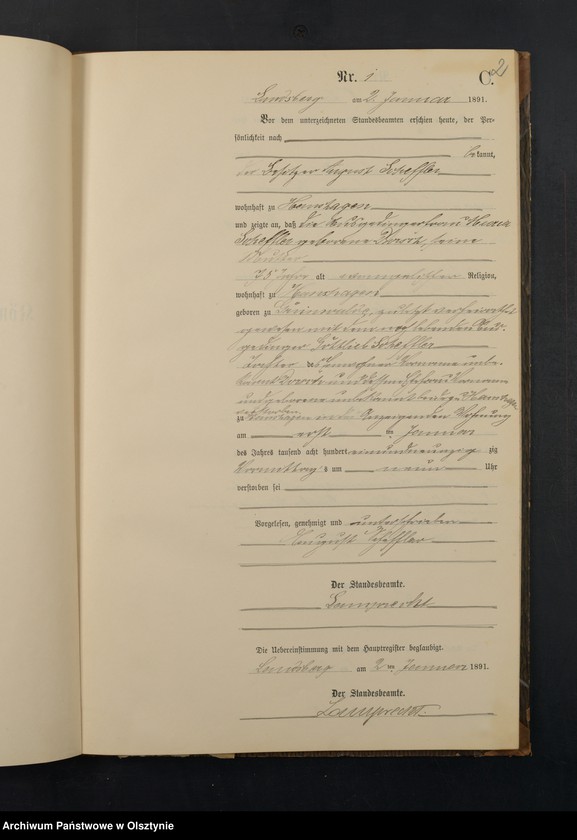 2
Nr. 1 C.
Landsberg am 2. Januar 1891.
Vor dem unterzeichneten Standesbeamten erschien heute, der Per-
sönlichkeit nach
bekannt,
der Besitzer August Scheffler
wohnhaft zu Hanshagen
und zeigte an, daß die Ausgedingerfrau
Scheffler geborene seine
Mutter
75 Jahre alt evangelischer Religion,
wohnhaft zu Hanshagen
geboren zu zuletzt verheirathet
gewesen mit dem noch lebenden Aus-
gedinger Gottlieb Scheffler
Tochter des Vorname unbe-
kannt und dessen Ehefrau Vorname
und geborene unbekannt beide zu
verstorben
zu Hanshagen in des Anzeigenden Wohnung
am erst ten Januar
des Jahres tausend acht hundert einundneunzig
Vormittags um neun Uhr
verstorben sei
Vorgelesen, genehmigt und unterschrieben
August Scheffler
Der Standesbeamte.
Lamprecht
Die Uebereinstimmung mit dem Hauptregister beglaubigt.
Landsberg am 2ten Januar 1891.
Der Standesbeamte.
Lamprecht.
Archiwum Państwowe w Olsztynie